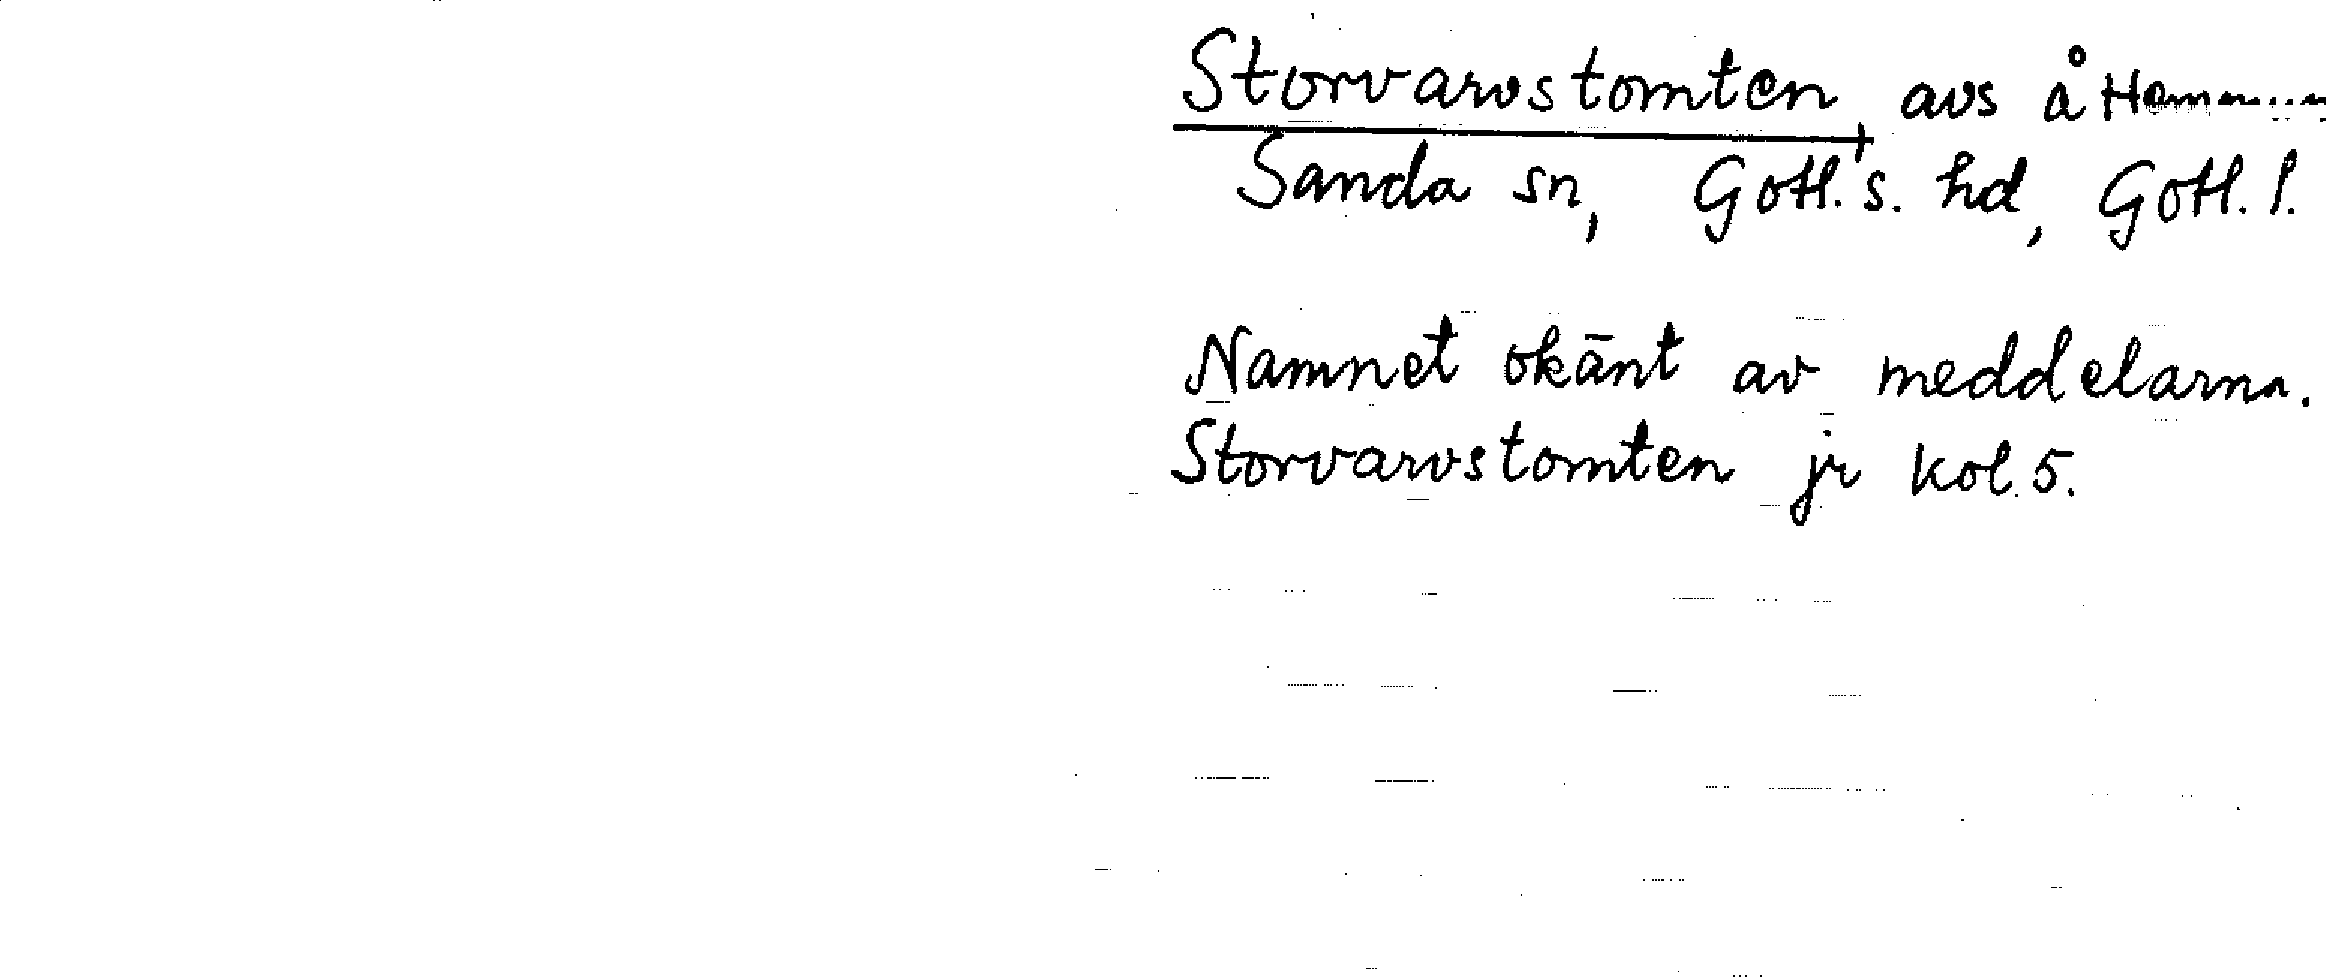 Storvarvstomten, avs å
Sanda sn, Gotl. s. hd, Gotl. l.
Namnet okänt av meddelarna.
Storvarvstomten jr kol. 5.